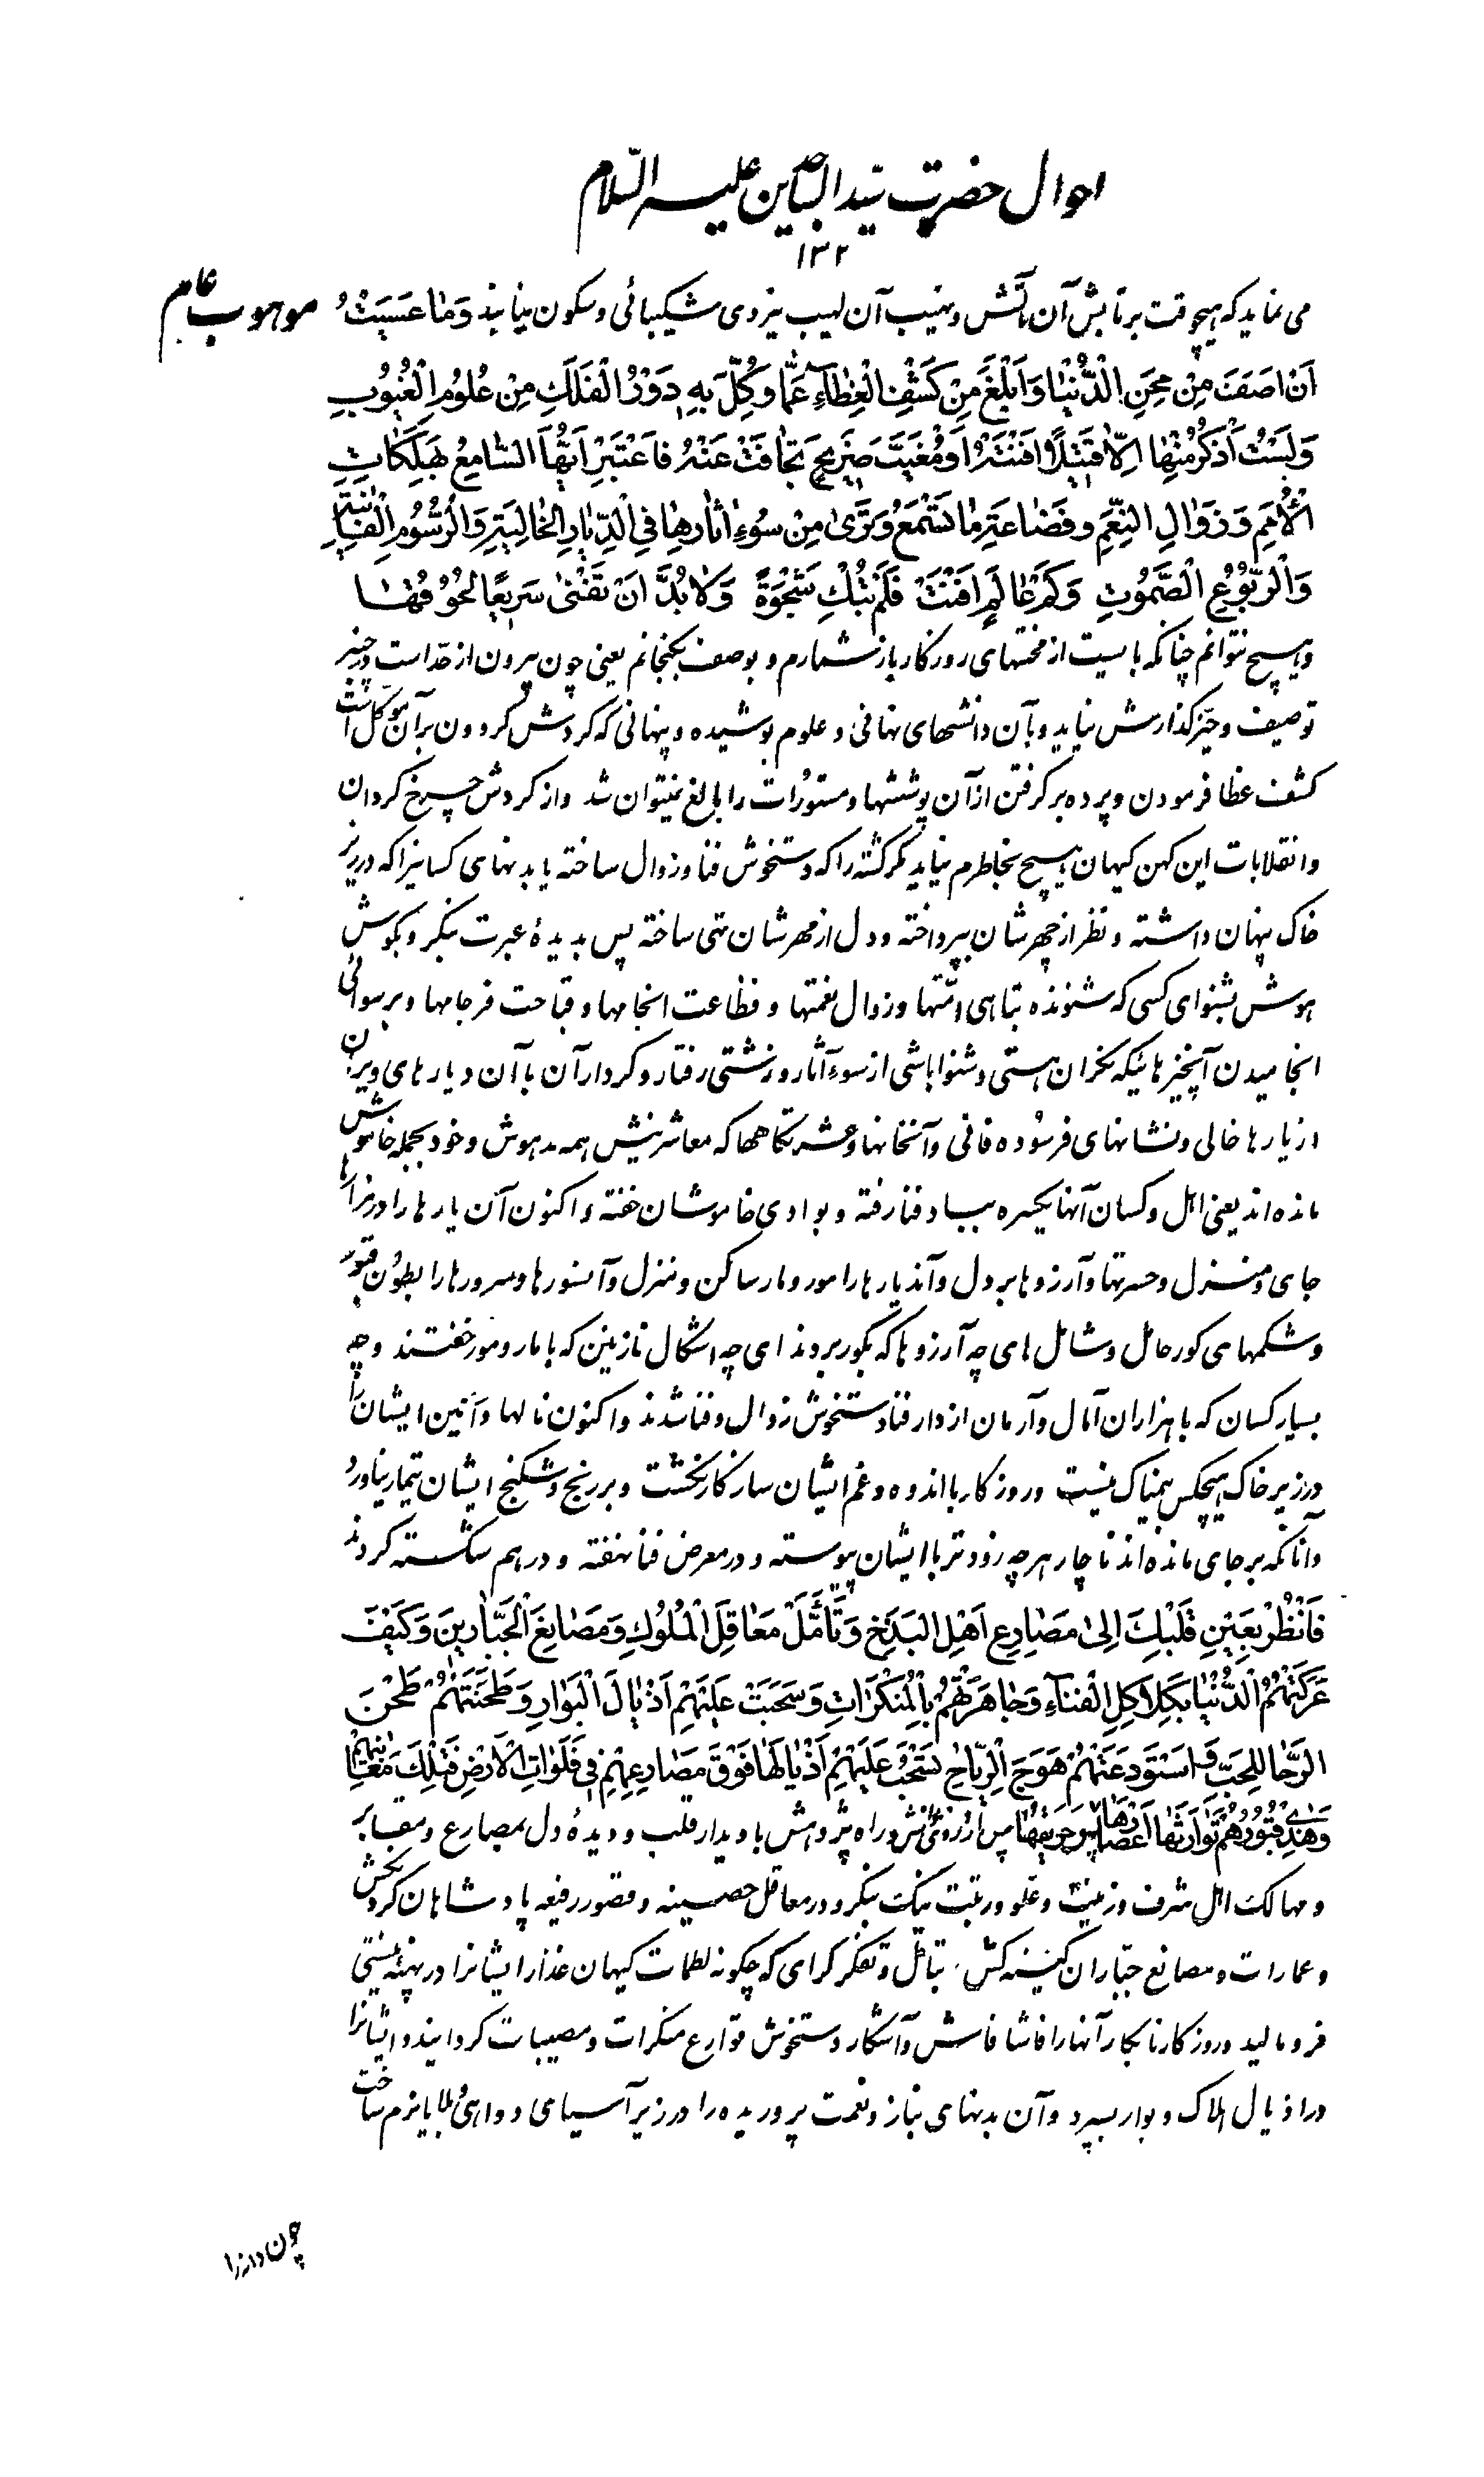 احوال حضرت سیّد السّاجدین علیه السّلام
۱۳۲
می نماید که هیچوقت بر تابش آن آتش و نهیب آن لهیب نیروی شکیبائی و سکون نیابند وَمٰا عَسَیَتْ
موهوب عام
اَنْ اَصَفَ مِنْ مِحَنِ الْدُّنْیٰا وَ اَبْلَغَ مِنْ کَشْفِ الْغِطٰآءِ عَمّٰا وُکِّلَ بِهِ دَوْرُ الْفَلَكِ مِنْ عُلُومِ الْغُیُوبِ
وَلَسْتُ اَذْکُرُ مِنْهٰا اِلّٰا قَتیٖلًا اَفْنَتْهُ اَوْ مُغَیَّبَ ضَرٖیحٍ تَجٰافَتْ عَنْهُ فَاعْتَبِرْ اَیُّهَا السّٰامِعُ بِهَلَکٰاتِ
الْاُمَمِ وَ زَوٰالِ النِّعَمِ وَ فَضٰاعَةِ مٰا تَسْمَعُ وَ تَرٰی مِنْ سُوءِ اٰثٰارِهٰا فِی الْدِّیٰارِ الْخٰالِیَةِ وَالْرُّسُومِ الْفٰانِیَةِ
وَالْرُّبُوعِ الْصَّمُوتِ وَکَمْ عٰالَمٍ اَفْنَتْ فَلَمْ تَبْكِ شَجْوَةً وَلٰا بُدَّ اَنْ تَفْنٰی سَرٖیعًا لُحُوقُهٰا
و هیچ نتوانم چنانکه بایست از محنتهای روزگار باز شمارم و بوصف بگنجانم یعنی چون بیرون از حدّ است در چنبر
توصیف و حیّز گذارش نیاید و بآن دانشهای نهانی و علوم پوشیده و پنهانی که گردش گردون بر آن موکّل است
کشف غطا فرمودن و پرده بر گرفتن از آن پوششها و مستورات را بالغ نمیتوان شد و از گردش چرخ گردان
و انقلابات این کهن کیهان هیچ بخاطرم نیاید مگر کشته را که دستخوش فنا و زوال ساخته یا بدنهای کسانیرا که در زیر
خاک پنهان داشته و نظر از چهرشان بپرداخته و دل از مهرشان تهی ساخته پس بدیدهٔ عبرت بنگر و بگوش
هوش بشنو ای کسی که شنونده تباهی امّتها و زوال نعمتها و فظاعت انجامها و قباحت فرجامها و برسوائی
انجامیدن آنچیزهائیکه نگران هستی و شنوا باشی از سوء آثار و زشتی رفتار و کردار آن با آن دیارهای ویران
از یارها خالی و نشانهای فرسوده فانی و آنخانها و عشرتگاهها که معاشرینش همه مدهوش و خود بجمله خاموش
مانده اند یعنی اهل و کسان آنها یکسره بباد فنا رفته و بوادی خاموشان خفته و اکنون آن یارها را در مزارها
جای و منزل و حسرتها و آرزوها بر دل و آندیارها را مور و مار ساکن و منزل و آنسورها و سرورها را بطون قبور
و شکمهای گور حامل و شامل ای چه آرزوها که بگور بردند ای چه اشکال نازنین که با مار و مور خفتند و چه
بسیار کسان که با هزاران آمال و آرمان از دار فنا دستخوش زوال و فنا شدند و اکنون نالها و آنین ایشان را
در زیر خاک هیچکس بیمناک نیست و روزگار با اندوه و غم ایشان سازگار نگشت و بر رنج و شکنج ایشان تیمار نیاورد
و آنانکه بر جای مانده اند ناچار هر چه زودتر با ایشان پیوسته و در معرض فنا نهفته و در هم شکسته گردند
فَانْظُرْ بِعَیْنِ قَلْبِكَ اِلٰی مَصٰارِعِ اَهْلِ الْبَذَخِ وَ تَأَمَّلْ مَعٰاقِلَ الْمُلُوكِ وَ مَصٰانِعَ الْجَبّٰارٖینَ وَ کَیْفَ
عَرَکَتْهُمُ الْدُّنْیٰا بِکَلٰاکِلِ الْفَنٰآءِ وَ جٰاهَرَتْهُمْ بِالْمُنْکَرٰاتِ وَ سَحَبَتْ عَلَیْهِمْ اَذْیٰالَ الْبَوٰارِ وَ طَحَنَتْهُمْ طَحْنَ
الرَّحٰا لِلْحَبِّ وَ اسْتَوْدَعَتْهُمْ هَوَجَ الْرِّیٰاحِ تَسْحَبُ عَلَیْهِمْ اَذْیٰالَهٰا فَوْقَ مَصٰارِعِهِمْ فٖی فَلَوٰاتِ الْاَرْضِ فَتِلْكَ مَغٰانِیهِمْ
وَهٰذٖی قُبُورُهُمْ تَوٰارَثَهٰا اَعْصٰارُهٰا وَ حَرٖیقُهٰا پس از روی دانش و راه پژوهش با دیدار قلب و دیدهٔ دل بمصارع و مقابر
و مهالک اهل شرف و زینت و علو و رتبت نیک بنگر و در معاقل حصینه و قصور رفیعه پادشاهان گردنکش
و عمارات و مصانع جبّاران کینه کش بتأمّل و تفکر گرای که چگونه لطمات کیهان غدّار ایشانرا در پهنهٔ نیستی
فرو مالید و روزگار نابکار آنها را فاشا فاش و آشکار دستخوش قوارع منکرات و مصیبات گردانید و ایشانرا
در اذیال هلاک و بوار بسپرد و آن بدنهای بناز و نعمت پروریده را در زیر آسیای دواهی و بلایا نرم ساخت
چون دانه را